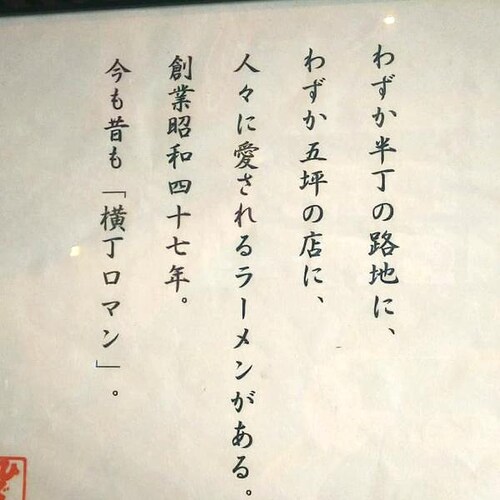 わずか半丁の路地に、
わずか五坪の店に、
人々に愛されるラーメンがある。
創業昭和四十七年。
今も昔も「横丁ロマン」。